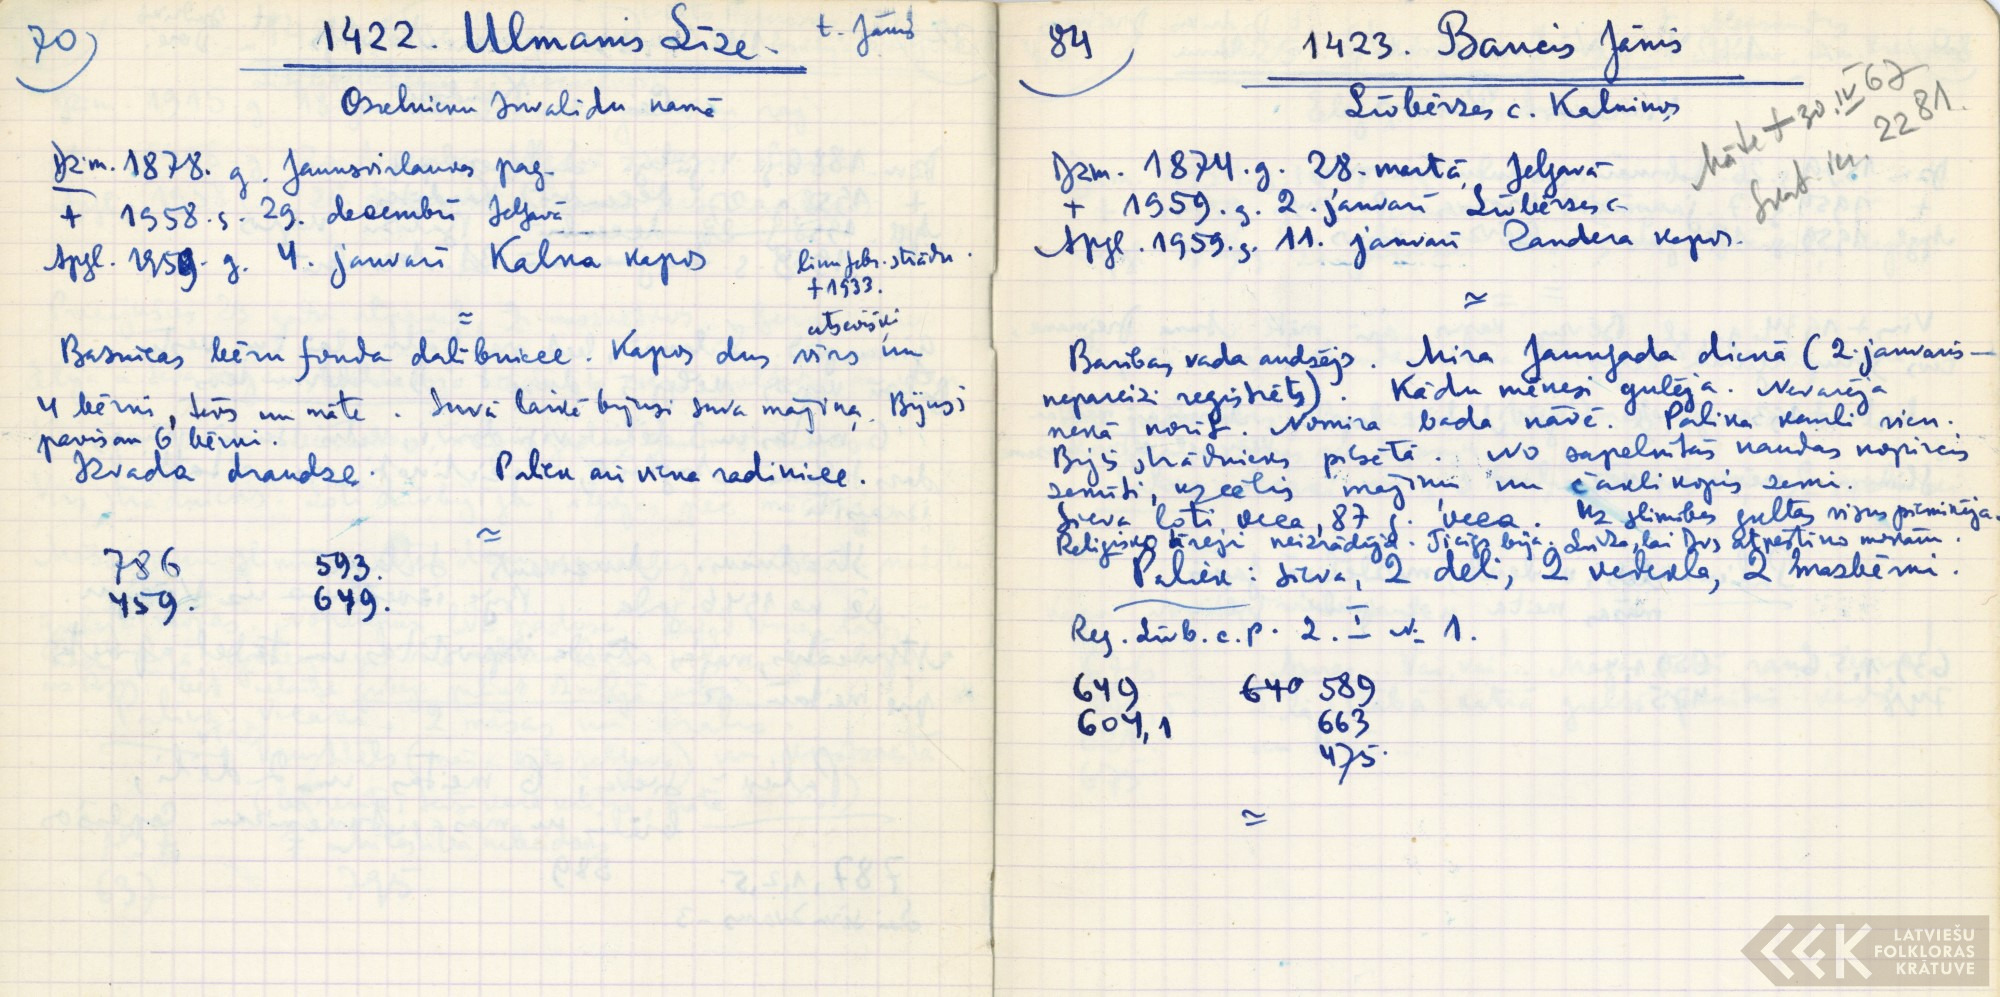 70) 1422. Ulmanis Līze. t. Jānis
Ozolnieku Invalidu namā
Dzm. 1878. g. Jaunsvirlaukas pag.
+ 1958. g. 29. decembrī Jelgavā
Apgl. 1959. g. 4. janvarī Kalna kapos
linu fabr. strādn.
+ 1933.
atsevišķi
=
Basnicas bēru fonda dalibniece. Kapos dus vīrs un
4 bērni, tēvs un māte. Savā laikā bijusi sava mājiņa. Bijuši
pavisam 6 bērni.
Izvada draudze. Paliek ari viena radiniece.
≃
786 593.
459. 649.
84) 1423. Baucis Jānis
Lībērzes c. Kalniņos
Māte + 30. IV 67
2281.
Dzm. 1874. g. 28. martā, Jelgavā
+ 1959. g. 2. janvarī Lībērzes c.
Apgl. 1959. g. 11. janvarī Zandera kapos.
≃
Baribas vada audzējs. Mira Jaungada dienā (2. janvaris –
nepareizi registrēts). Kādu mēnesi gulēja. Nevarēja
nekā norīt. Nomira bada nāvē. Palika kauli vien.
Bijis strādnieks pilsētā. No sapelnitās naudas nopircis
zemīti, uzcēlis mājiņu un čakli kopis zemi.
Sieva ļoti veca, 87 g. veca. Uz slimibas gultas visus pieminēja.
Religisko ārēji neizrādija. Ticīgs bija. Lūdza, lai Dvs atpestī no mokām.
Paliek: sieva, 2 dēli, 2 vedekla, 2 mazbērni.
Reg. Līb. c. p. 2. I N 1.
649 640 589
604,1 663
475.
≃
LATVIEŠU
FOLKLORAS
KRĀTUVE